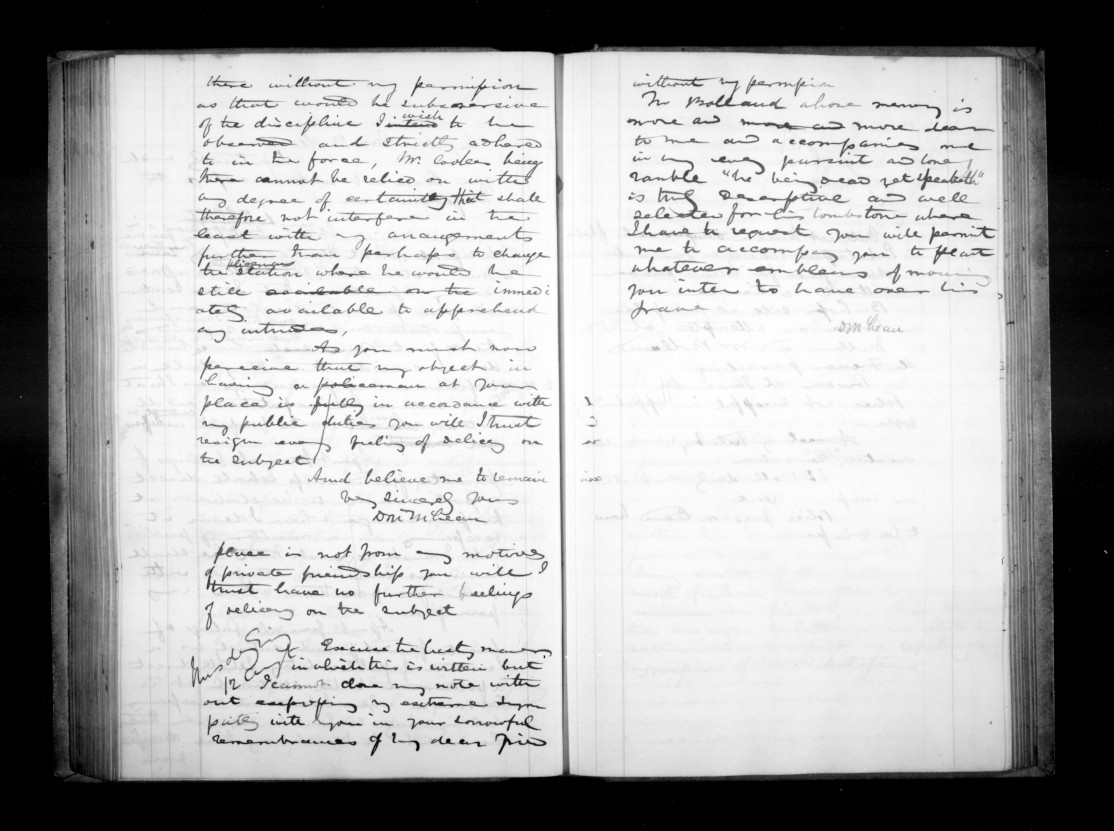 there without my permission
as that would be subversive
of the discipline I intend wish to be
observed and strictly adhered
to in the force, Mr. Cooler being
there cannot be relied on with
any degree of certainty that shall
therefore not interfere in the
least with my arrangements
further than perhaps to change
the policeman station where he would be
still available on the immedi
ately available to apprehend
any intruders.
As you must now
perceive that my object in
having a policeman at your
place is fully in accordance with
my public duties you will I trust
resign every feeling of delicacy on
the subject
And believe me to remain
very sincerely yours
Don McLean
place is not from any motives
of private friendship you will I
trust have no further feelings
of delicacy on the subject
Excuse the hasty manner
in which this is written but
12 Augt I cannot close my note with
out expressing my extreme sym
pathy with you in your sorrowful
remembrances of my dear frie
without my permission
Mr Bolland whose memory is
more and more and more dear
to me and accompanies me
in my every pursuit and lonely
ramble "he being dead yet speaketh"
is truly descriptive and well
selected for his tombstone where
I have to request you will permit
me to accompany you to plant
whatever emblems of mourning
you intend to have over his
grave
D McLean